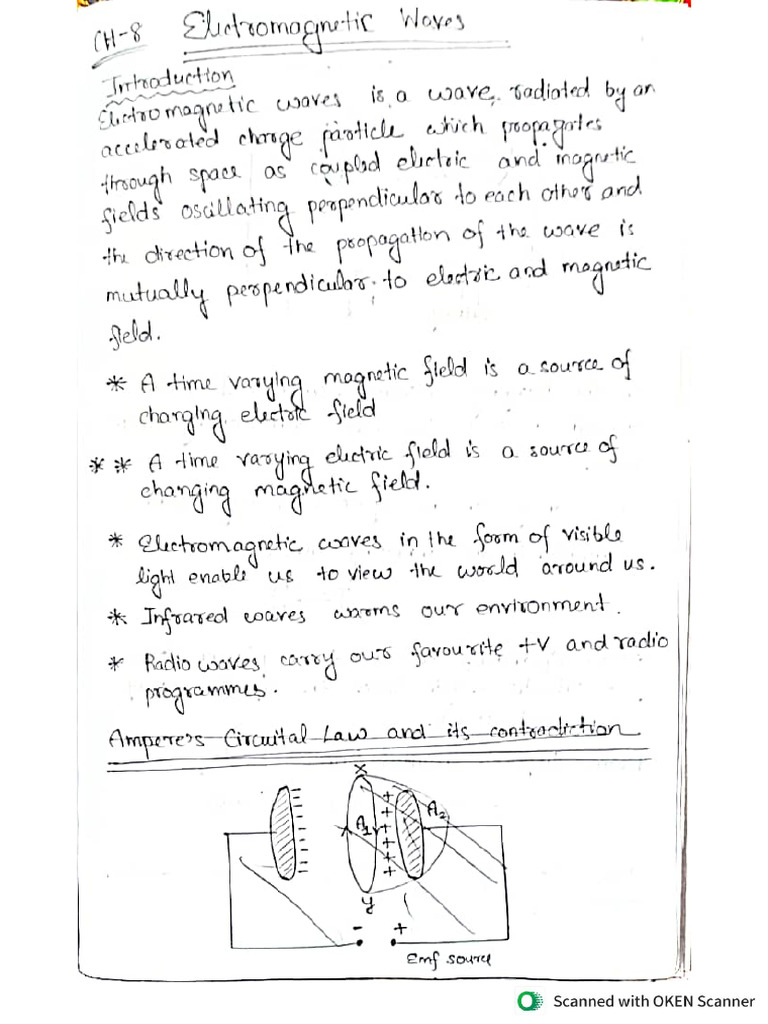 CH-8 Electromagnetic Waves
Introduction
Electromagnetic waves is a wave, radiated by an
accelerated charge particle which propagates
through space as coupled electric and magnetic
fields oscillating perpendicular to each other and
the direction of the propagation of the wave is
mutually perpendicular to electric and magnetic
field.
* A time varying magnetic field is a source of
changing electric field
* * A time varying electric field is a source of
changing magnetic field.
* Electromagnetic waves in the form of visible
light enable us to view the world around us.
* Infrared waves warms our environment.
* Radio waves carry our favourite tv and radio
programmes.
Ampere's Circuital Law and its contradiction
X
A1
A2
y
- +
Emf source
Scanned with OKEN Scanner